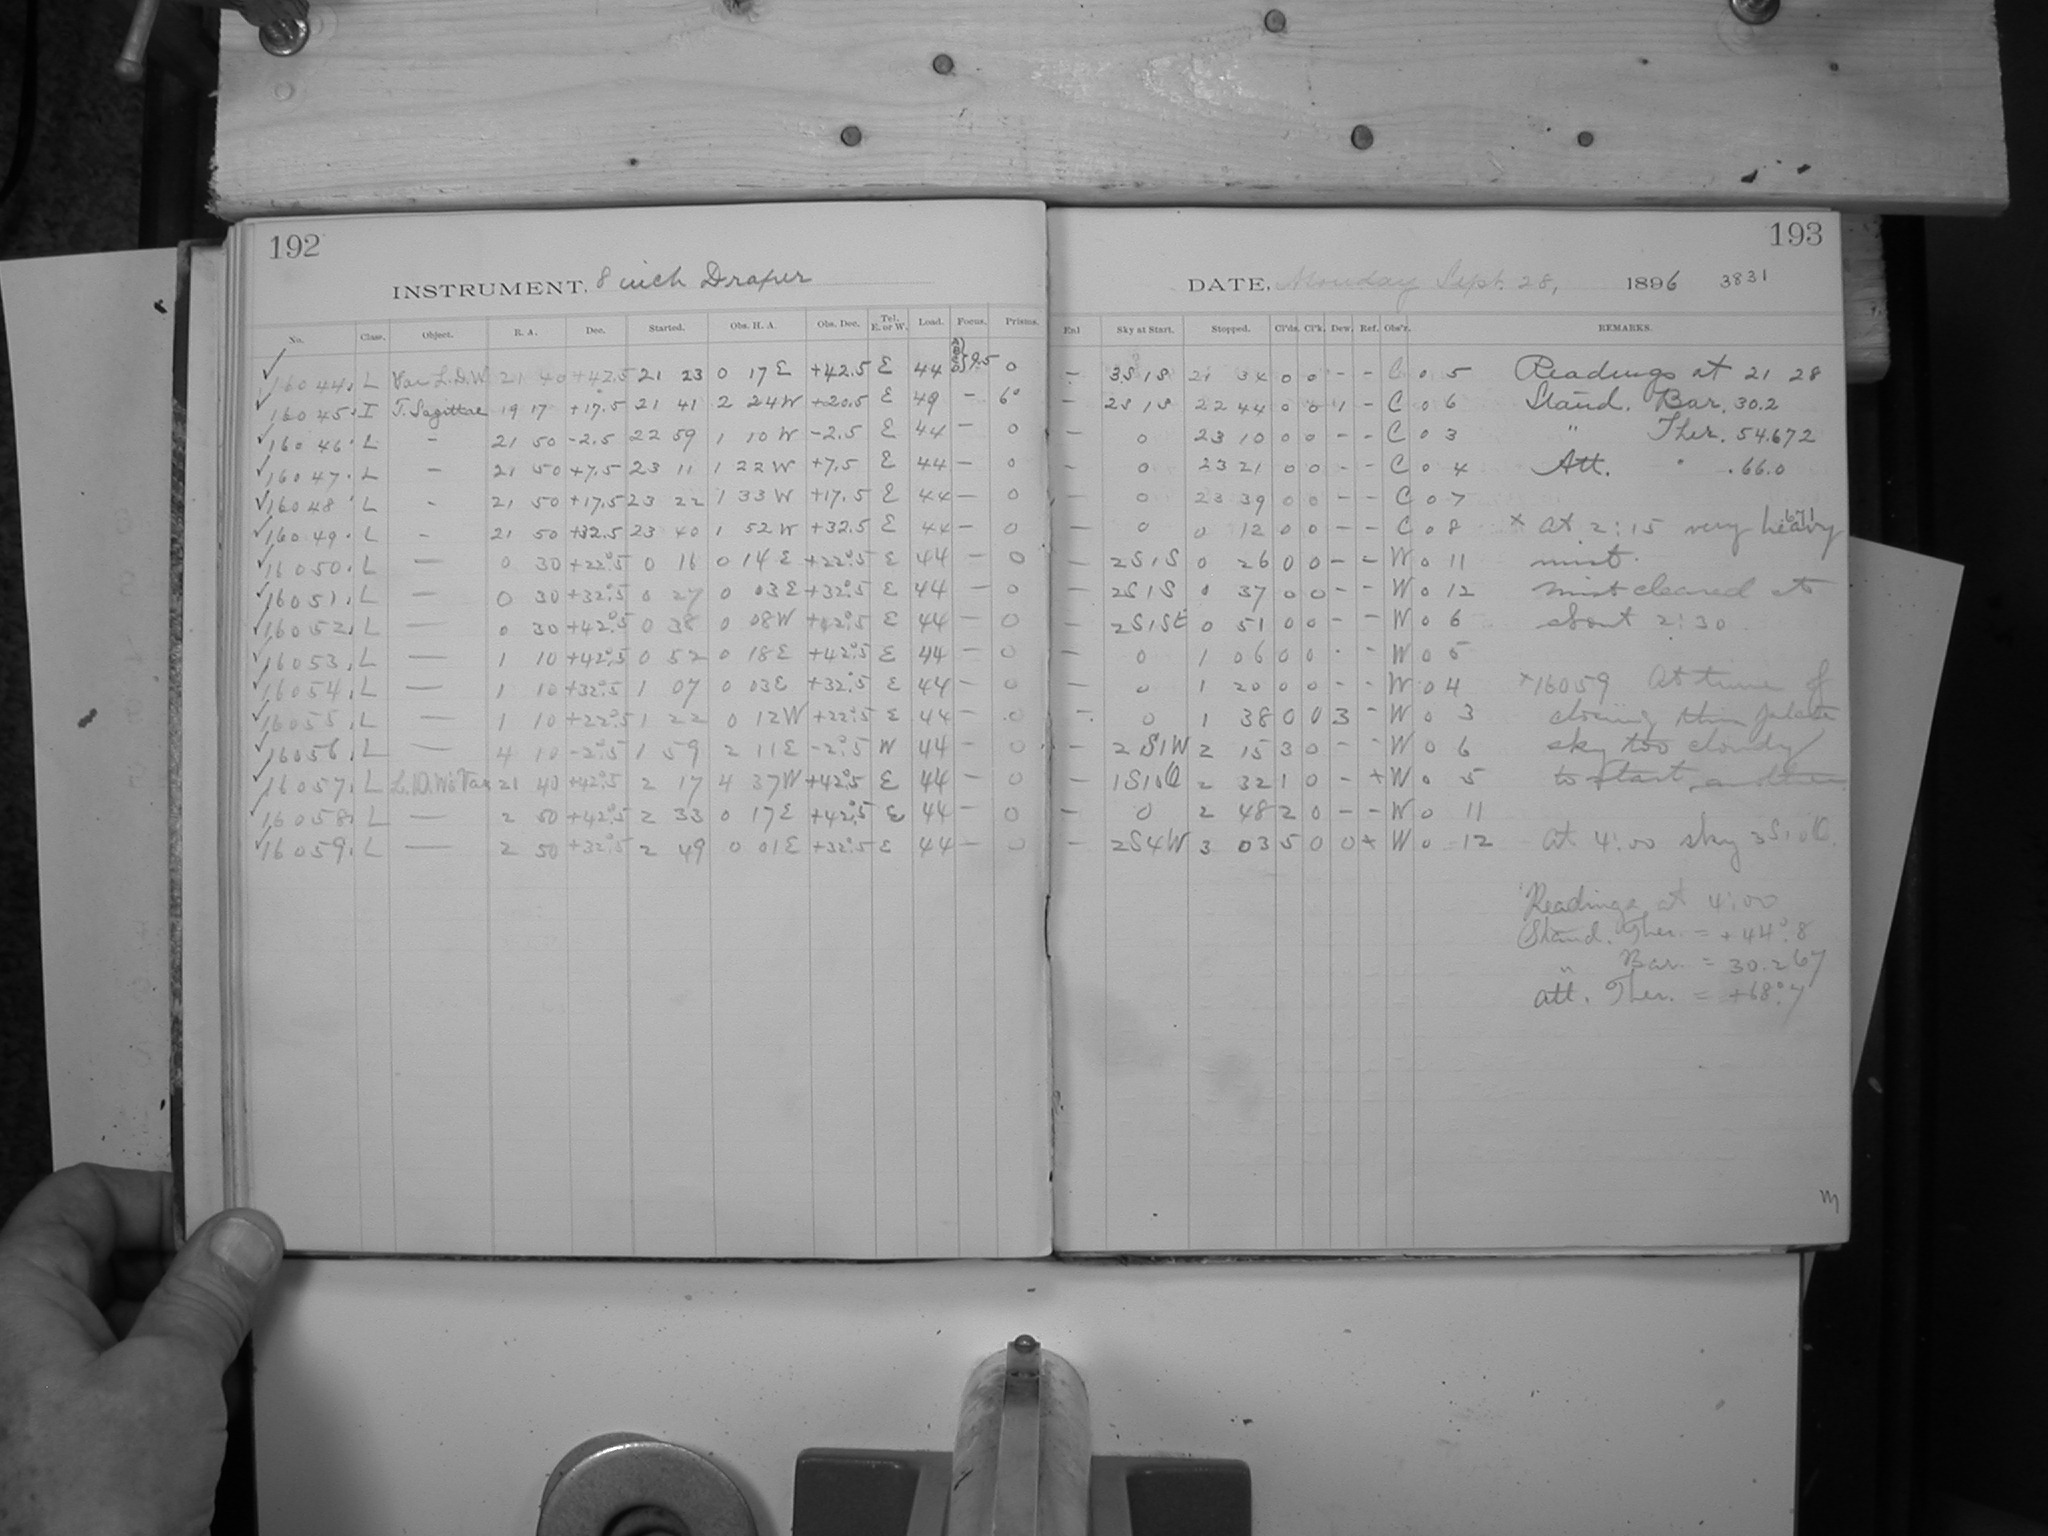 192
INSTRUMENT. 8 inch Draper
No. Class. Object. R. A. Dec. Started. Obs. H. A. Obs. Dec. Tel. E. or W. Load. Focus. Prisms.
✓ 16044. L Var L.D.W 21 40 +42.5 21 23 0 17 E +42.5 E 44 9.5 0
✓ 16045. I T. Sagittae 19 17 +17.5 21 41 2 24 W +20.5 E 49 – 6°
✓ 16046. L – 21 50 -2.5 22 59 1 10 W -2.5 E 44 – 0
✓ 16047. L – 21 50 +7.5 23 11 1 22 W +7.5 E 44 – 0
✓ 16048 L – 21 50 +17.5 23 22 1 33 W +17.5 E 44 – 0
✓ 16049. L – 21 50 +32.5 23 40 1 52 W +32.5 E 44 – 0
✓ 16050. L — 0 30 +22°.5 0 16 0 14 E +22°.5 E 44 – 0
✓ 16051. L — 0 30 +32°.5 0 27 0 03 E +32°.5 E 44 – 0
✓ 16052. L — 0 30 +42°.5 0 38 0 08 W +42°.5 E 44 – 0
✓ 16053. L — 1 10 +42°.5 0 52 0 18 E +42°.5 E 44 – 0
✓ 16054. L — 1 10 +32°.5 1 07 0 03 E +32°.5 E 44 – 0
✓ 16055. L — 1 10 +22°.5 1 22 0 12 W +22°.5 E 44 – 0
✓ 16056. L — 4 10 -2°.5 1 59 2 11 E -2°.5 W 44 – 0
✓ 16057. L L.D.W's Var 21 40 +42°.5 2 17 4 37 W +42°.5 E 44 – 0
✓ 16058. L — 2 50 +42°.5 2 33 0 17 E +42°.5 E 44 – 0
✓ 16059. L — 2 50 +32°.5 2 49 0 01 E +32°.5 E 44 – 0
193
DATE, Monday Sept. 28, 1896 3831
Enl Sky at Start. Stopped. Cl'ds. Cl'k. Dew. Ref. Obs'r. REMARKS.
– 3S1S 21 34 0 0 – – C 0 5 Readings at 21 28
– 2S1S 22 44 0 0 1 – C 0 6 Stand. Bar. 30.2
– 0 23 10 0 0 – – C 0 3 " Ther. 54.672
– 0 23 21 0 0 – – C 0 4 Att. " .66.0
– 0 23 39 0 0 – – C 0 7
.671
– 0 0 12 0 0 – – C 0 8 x At 2:15 very heavy
– 2S1S 0 26 0 0 – – W 0 11 mist.
– 2S1S 0 37 0 0 – – W 0 12 mist cleared at
– 2S1SE 0 51 0 0 – – W 0 6 about 2:30
– 0 1 06 0 0 – – W 0 5
– 0 1 20 0 0 – – W 0 4 x16059 At time of
– 0 1 38 0 0 3 – W 0 3 closing this plate
– 2S1W 2 15 3 0 – – W 0 6 sky too cloudy
– 2 32 1 0 – x W 0 5 to start another
– 0 2 48 2 0 – – W 0 11
– 2S4W 3 03 5 0 0 x W 0 12 At 4:00 sky
Readings at 4:00
Stand. Ther. = +44°.8
" Bar. = 30.267
Att. Ther. = +68°.7
m